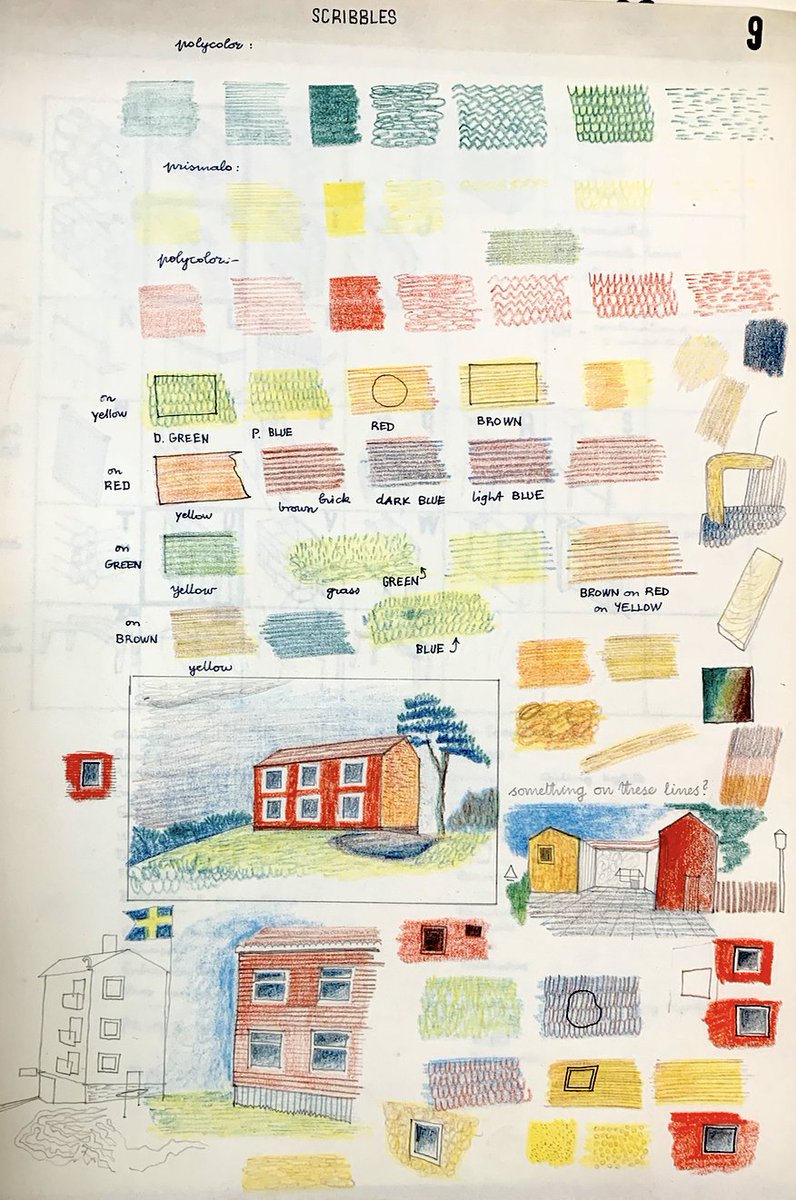 SCRIBBLES
9
polycolor:
prismalo:
polycolor:-
on yellow
D. GREEN
P. BLUE
RED
BROWN
on RED
yellow
brown brick
dARK BLUE
light BLUE
on GREEN
yellow
grass
GREEN
BROWN on RED
on YELLOW
on BROWN
yellow
BLUE
something on these lines?